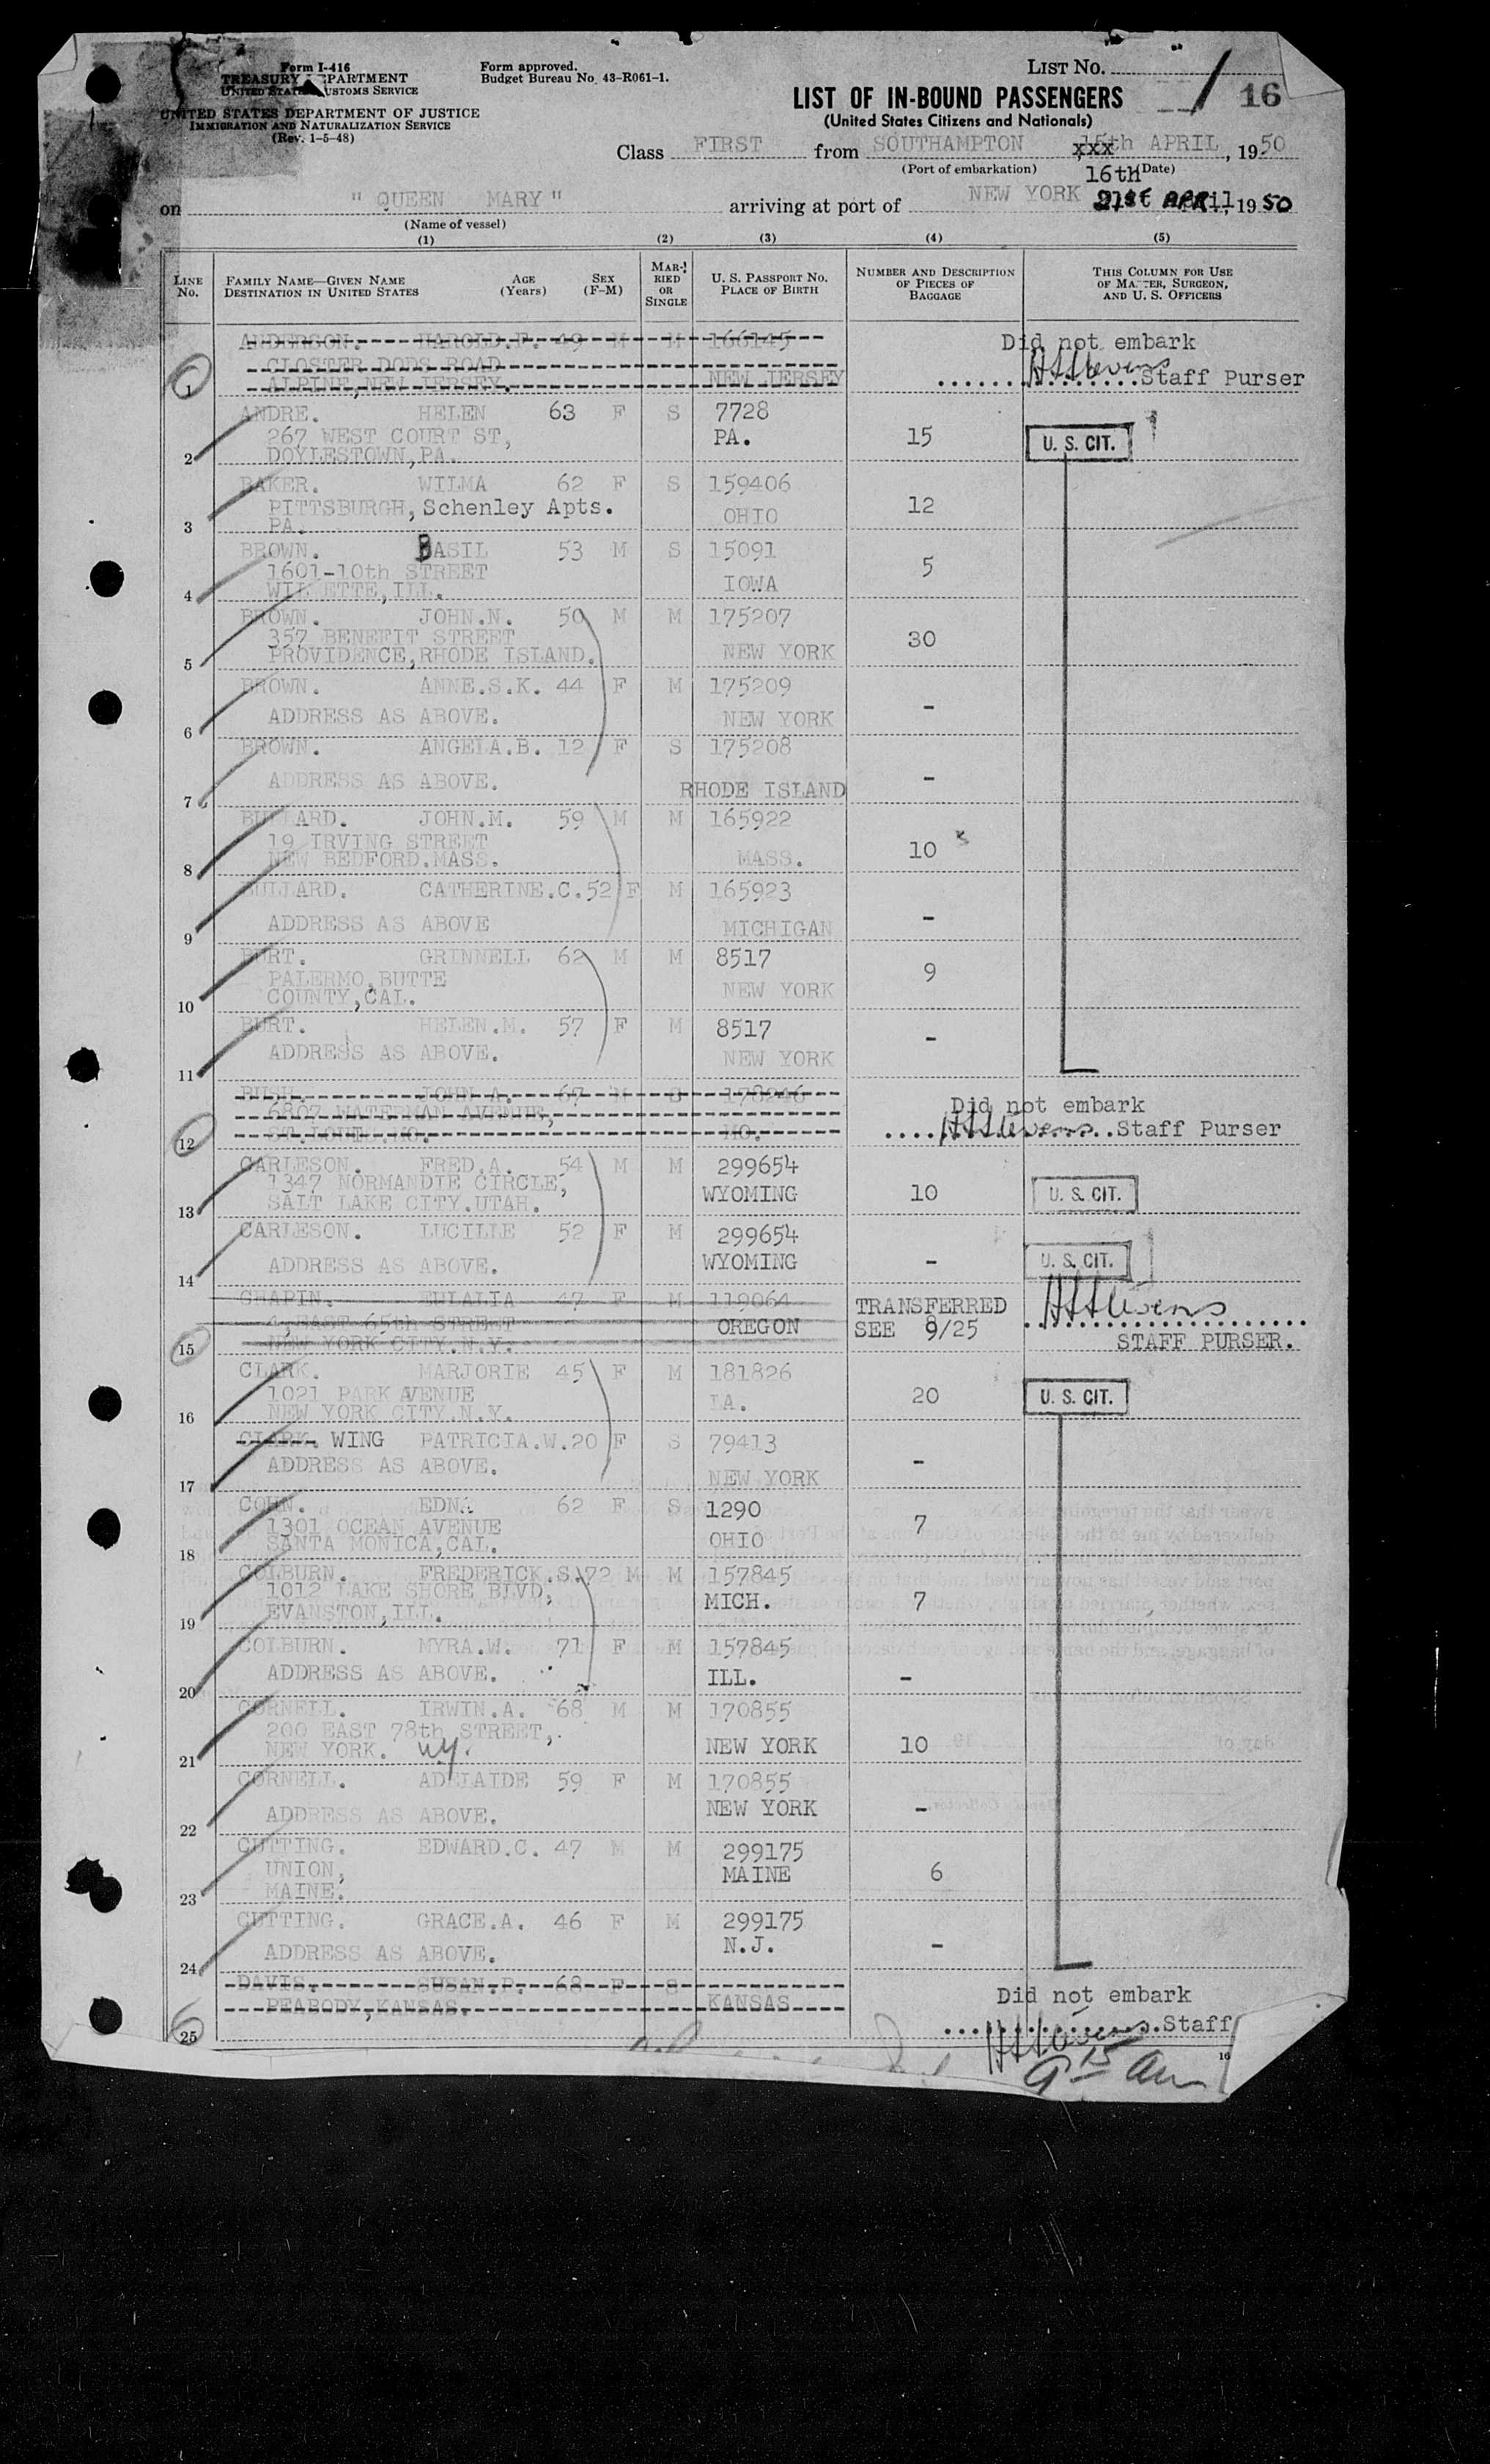 Form I-416
TREASURY DEPARTMENT
UNITED STATES CUSTOMS SERVICE
UNITED STATES DEPARTMENT OF JUSTICE
IMMIGRATION AND NATURALIZATION SERVICE
(Rev. 1-5-48)
Form approved.
Budget Bureau No. 43-R061-1.
LIST NO.
16
LIST OF IN-BOUND PASSENGERS
(United States Citizens and Nationals)
Class FIRST from SOUTHAMPTON xxx 15th APRIL, 1950
(Port of embarkation) 16th (Date)
on "QUEEN MARY" arriving at port of NEW YORK 21st APRil, 1950
(Name of vessel)
(1) (2) (3) (4) (5)
LINE NO. FAMILY NAME—GIVEN NAME DESTINATION IN UNITED STATES AGE (Years) SEX (F-M) MARRIED OR SINGLE U. S. PASSPORT NO. PLACE OF BIRTH NUMBER AND DESCRIPTION OF PIECES OF BAGGAGE THIS COLUMN FOR USE OF MASTER, SURGEON, AND U. S. OFFICERS
ANDERSON. HAROLD.F. 49 M M 166145 Did not embark
CLOSTER DODS ROAD
1 ALPINE,NEW JERSEY. NEW JERSEY HStevens Staff Purser
ANDRE. HELEN 63 F S 7728
267 WEST COURT ST, PA. 15 U. S. CIT.
2 DOYLESTOWN,PA.
BAKER. WILMA 62 F S 159406
PITTSBURGH, Schenley Apts. OHIO 12
3 PA.
BROWN. BASIL 53 M S 15091
1601-10th STREET IOWA 5
4 WILMETTE,ILL.
BROWN. JOHN.N. 50 M M 175207
357 BENEFIT STREET 30
5 PROVIDENCE,RHODE ISLAND. NEW YORK
BROWN. ANNE.S.K. 44 F M 175209
6 ADDRESS AS ABOVE. NEW YORK -
BROWN. ANGELA.B. 12 F S 175208
7 ADDRESS AS ABOVE. RHODE ISLAND -
BULLARD. JOHN.M. 59 M M 165922
19 IRVING STREET
8 NEW BEDFORD.MASS. MASS. 10
BULLARD. CATHERINE.C. 52 F M 165923
9 ADDRESS AS ABOVE MICHIGAN -
BURT. GRINNELL 62 M M 8517
PALERMO,BUTTE 9
10 COUNTY,CAL. NEW YORK
BURT. HELEN.M. 57 F M 8517
11 ADDRESS AS ABOVE. NEW YORK -
BUSH. JOHN A. 67 M S 178246 Did not embark
6807 WATERMAN AVENUE,
12 ST.LOUIS MO. MO. HStevens Staff Purser
CARLESON. FRED.A. 54 M M 299654
1347 NORMANDIE CIRCLE, WYOMING 10 U. S. CIT.
13 SALT LAKE CITY.UTAH.
CARLESON. LUCILLE 52 F M 299654
14 ADDRESS AS ABOVE. WYOMING - U. S. CIT.
CHAPIN. EULALIA 47 F M 119064 TRANSFERRED HStevens
4,EAST 65th STREET OREGON SEE 9/25
15 NEW YORK CITY.N.Y. STAFF PURSER.
CLARK. MARJORIE 45 F M 181826
1021 PARK AVENUE 20 U. S. CIT.
16 NEW YORK CITY.N.Y. IA.
CLARK. WING PATRICIA.W. 20 F S 79413
17 ADDRESS AS ABOVE. NEW YORK -
COHN. EDNA 62 F S 1290
1301 OCEAN AVENUE 7
18 SANTA MONICA,CAL. OHIO
COLBURN. FREDERICK.S. 72 M M 157845
1012 LAKE SHORE BLVD, MICH. 7
19 EVANSTON,ILL.
COLBURN. MYRA.W. 71 F M 157845
20 ADDRESS AS ABOVE. ILL. -
CORNELL. IRWIN.A. 68 M M 170855
200 EAST 78th STREET,
21 NEW YORK. NY. NEW YORK 10
CORNELL. ADELAIDE 59 F M 170855
22 ADDRESS AS ABOVE. NEW YORK -
CUTTING. EDWARD.C. 47 M M 299175
UNION, MAINE 6
23 MAINE.
CUTTING. GRACE.A. 46 F M 299175
24 ADDRESS AS ABOVE. N.J. -
DAVIS. SUSAN.P. 68 F S Did not embark
PEABODY,KANSAS. KANSAS
25 HStevens Staff
9 15 am
16